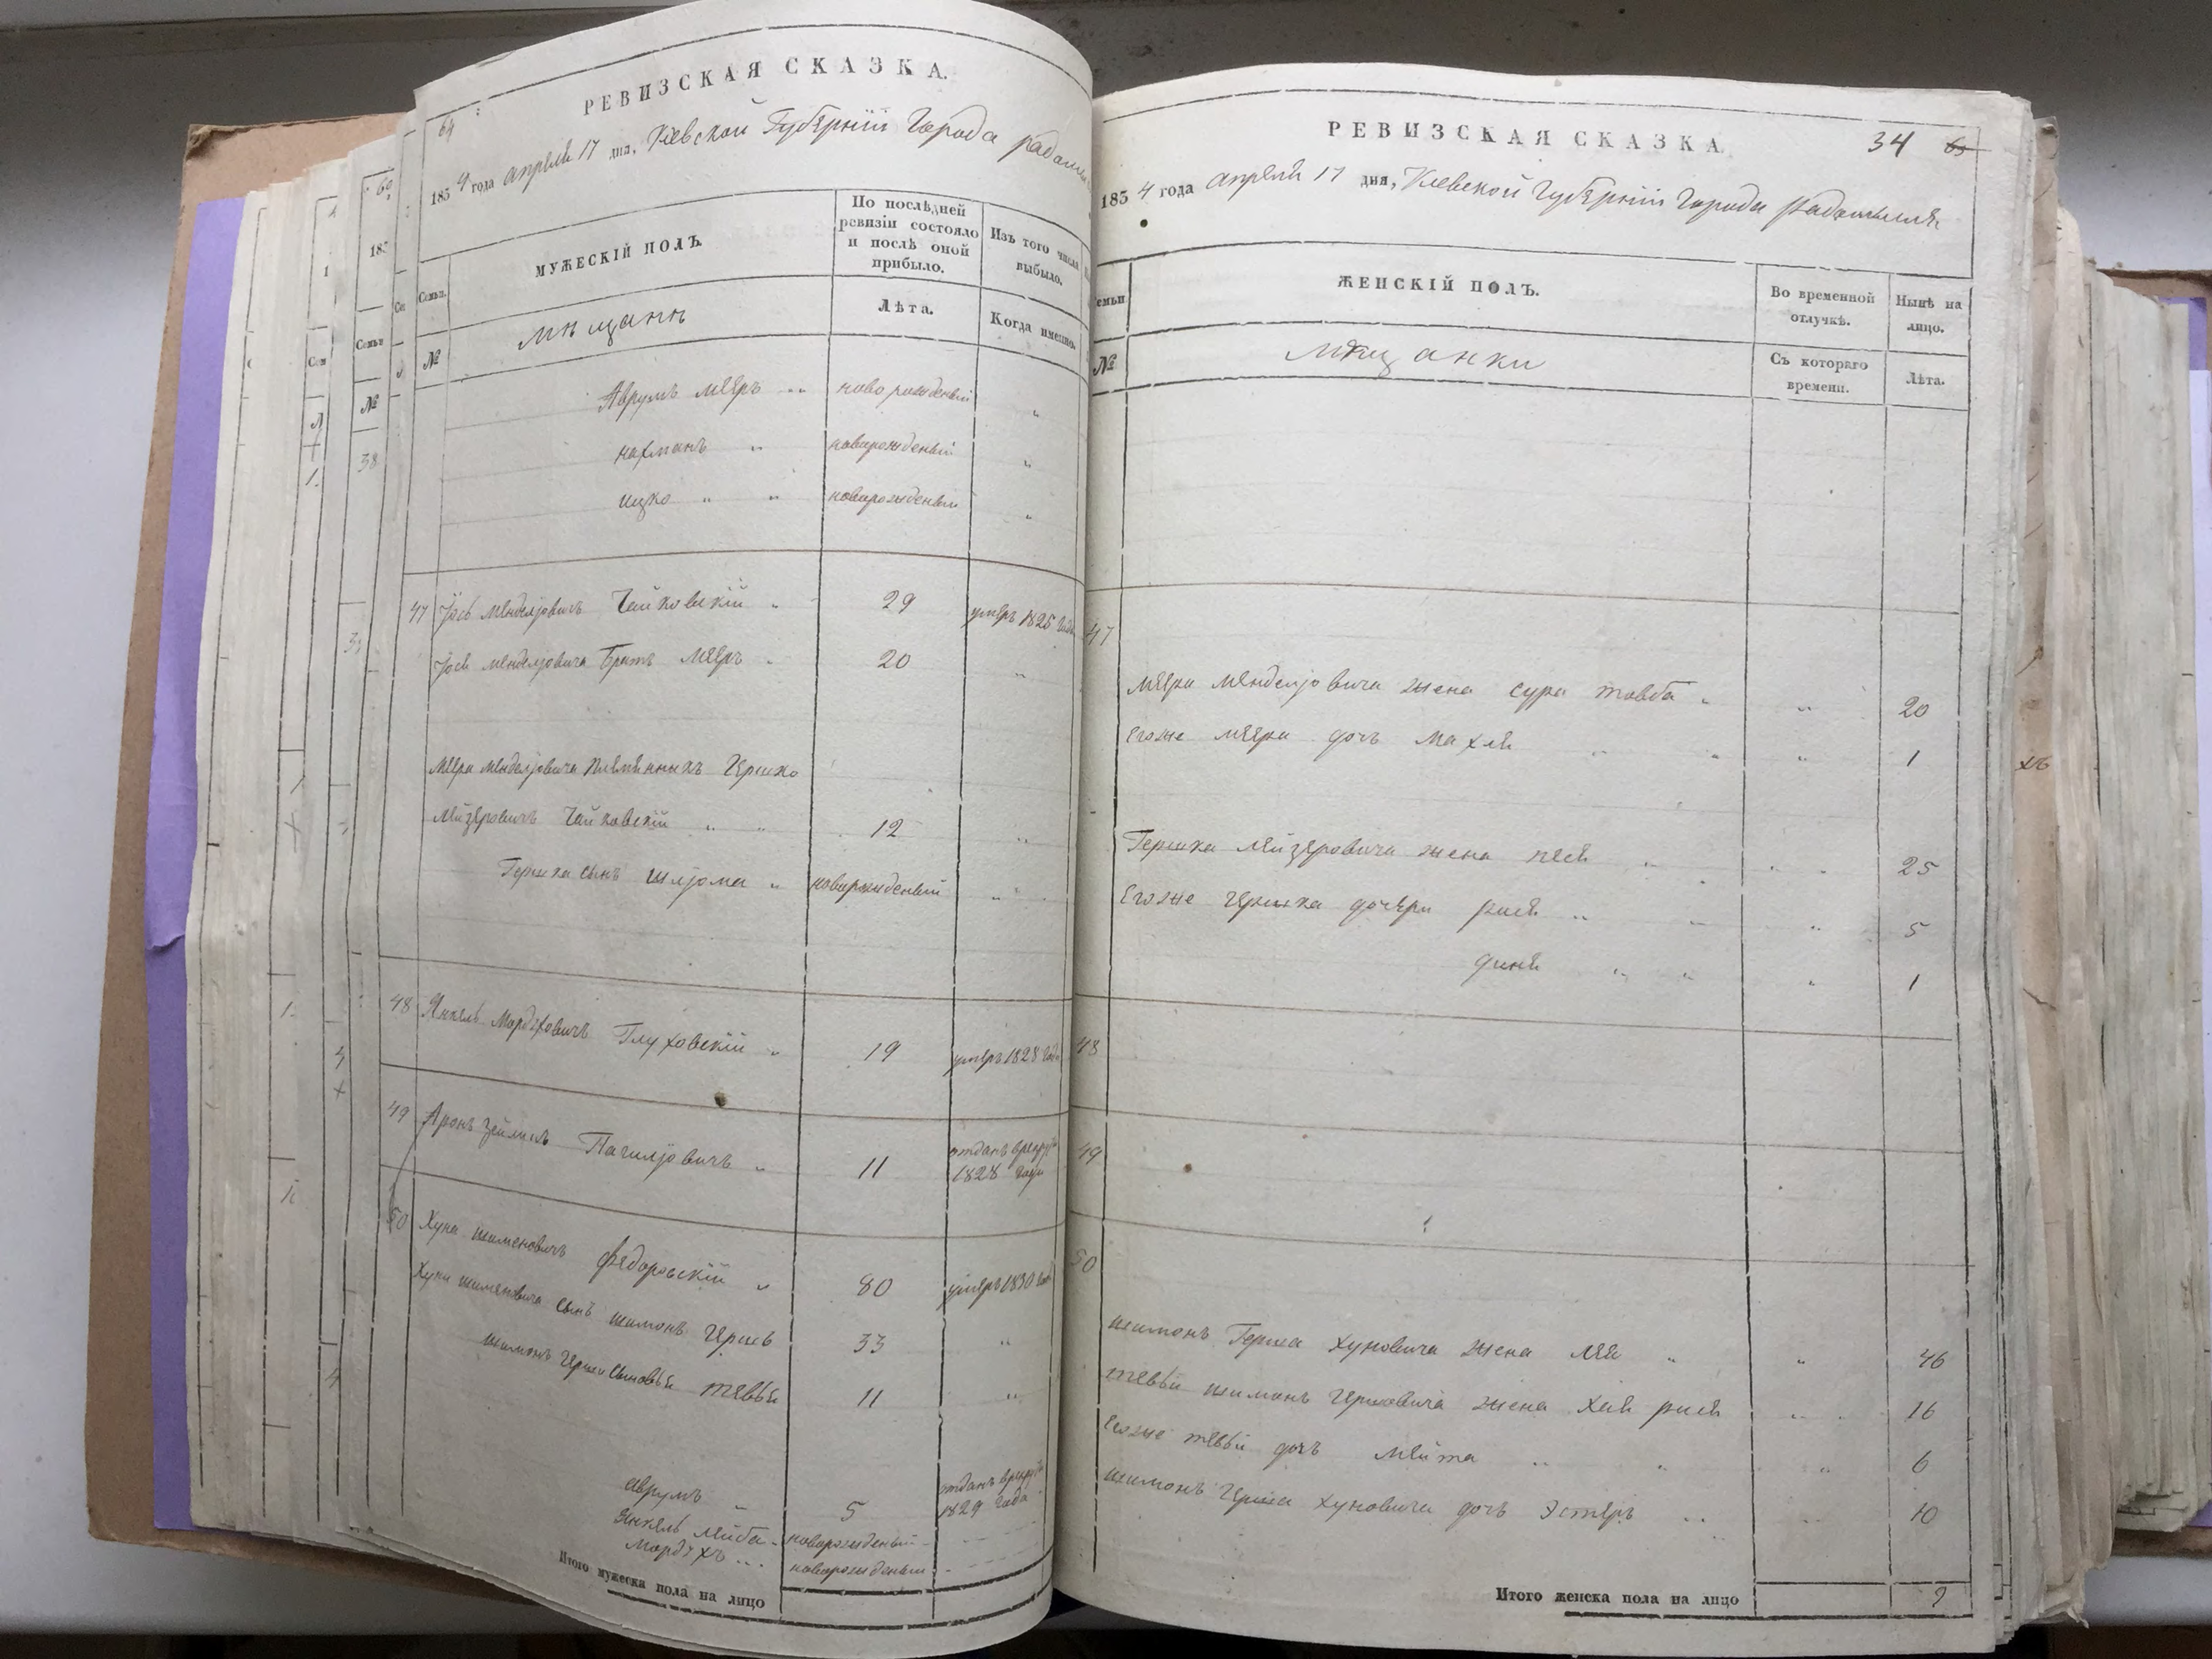 РЕВИЗСКАЯ СКАЗКА.
64
185 4 года апреля 17 дня, Кіевской Губерніи Города радомы
Семьи.
МУЖЕСКІЙ ПОЛЪ
По послѣдней
ревизіи состояло
и послѣ оной
прибыло.
Изъ того числа
выбыло.
№
мѣщанѣ
Лѣта.
Когда именно.
Аврумъ мееръ " новорожденый "
нахманъ " новорожденый "
ицко " " новорожденый "
47 Іось менделіовичъ Чайковскій " 29 умеръ 1825 года
Іося менделіовича Братъ мееръ " 20 "
меера менделіовича племянныкъ Гершко
Лейзеровичъ Чайковскій " " 12 "
Гершка сынъ шліома " новорожденый "
48 Янкель Мордуховичъ Глуховскій " 19 умеръ 1828 года
49 Аронъ Зейликъ 11 отданъ
1828 года
50 Хуна шимоновичъ федоровскій " 80 умеръ 1830 года
Хуны шимоновича сынъ шимонъ Герш 33 "
шимонъ Герша сыновья тевья 11 "
аврумъ " 5 отданъ
1829 года
Янкель Лейба новорожденый
Мордухъ новорожденый
Итого мужеска пола на лицо
РЕВИЗСКАЯ СКАЗКА
34 65
185 4 года апреля 17 дня, Кіевской Губерніи Города Радомысля
емьи
ЖЕНСКІЙ ПОЛЪ.
Во временной
отлучкѣ.
Нынѣ на
лицо.
№
мѣщанки
Съ котораго
времени.
Лѣта.
47
меера менделіовича жена сура товба " " 20
Егоже меера дочъ махля " " " 1
Гершка Лейзеровича жена песя " " 25
Егоже Гершка дочери рися " " " 5
диня " " " 1
48
49
50
шимонъ Герша хуновича жена лея " " 46
тевьи шимонъ Гершовича жена хая рися " 16
Егоже тевьи дочъ мейта " " " 6
шимонъ Герша хуновича дочъ Эстеръ " " 10
Итого женска пола на лицо 9